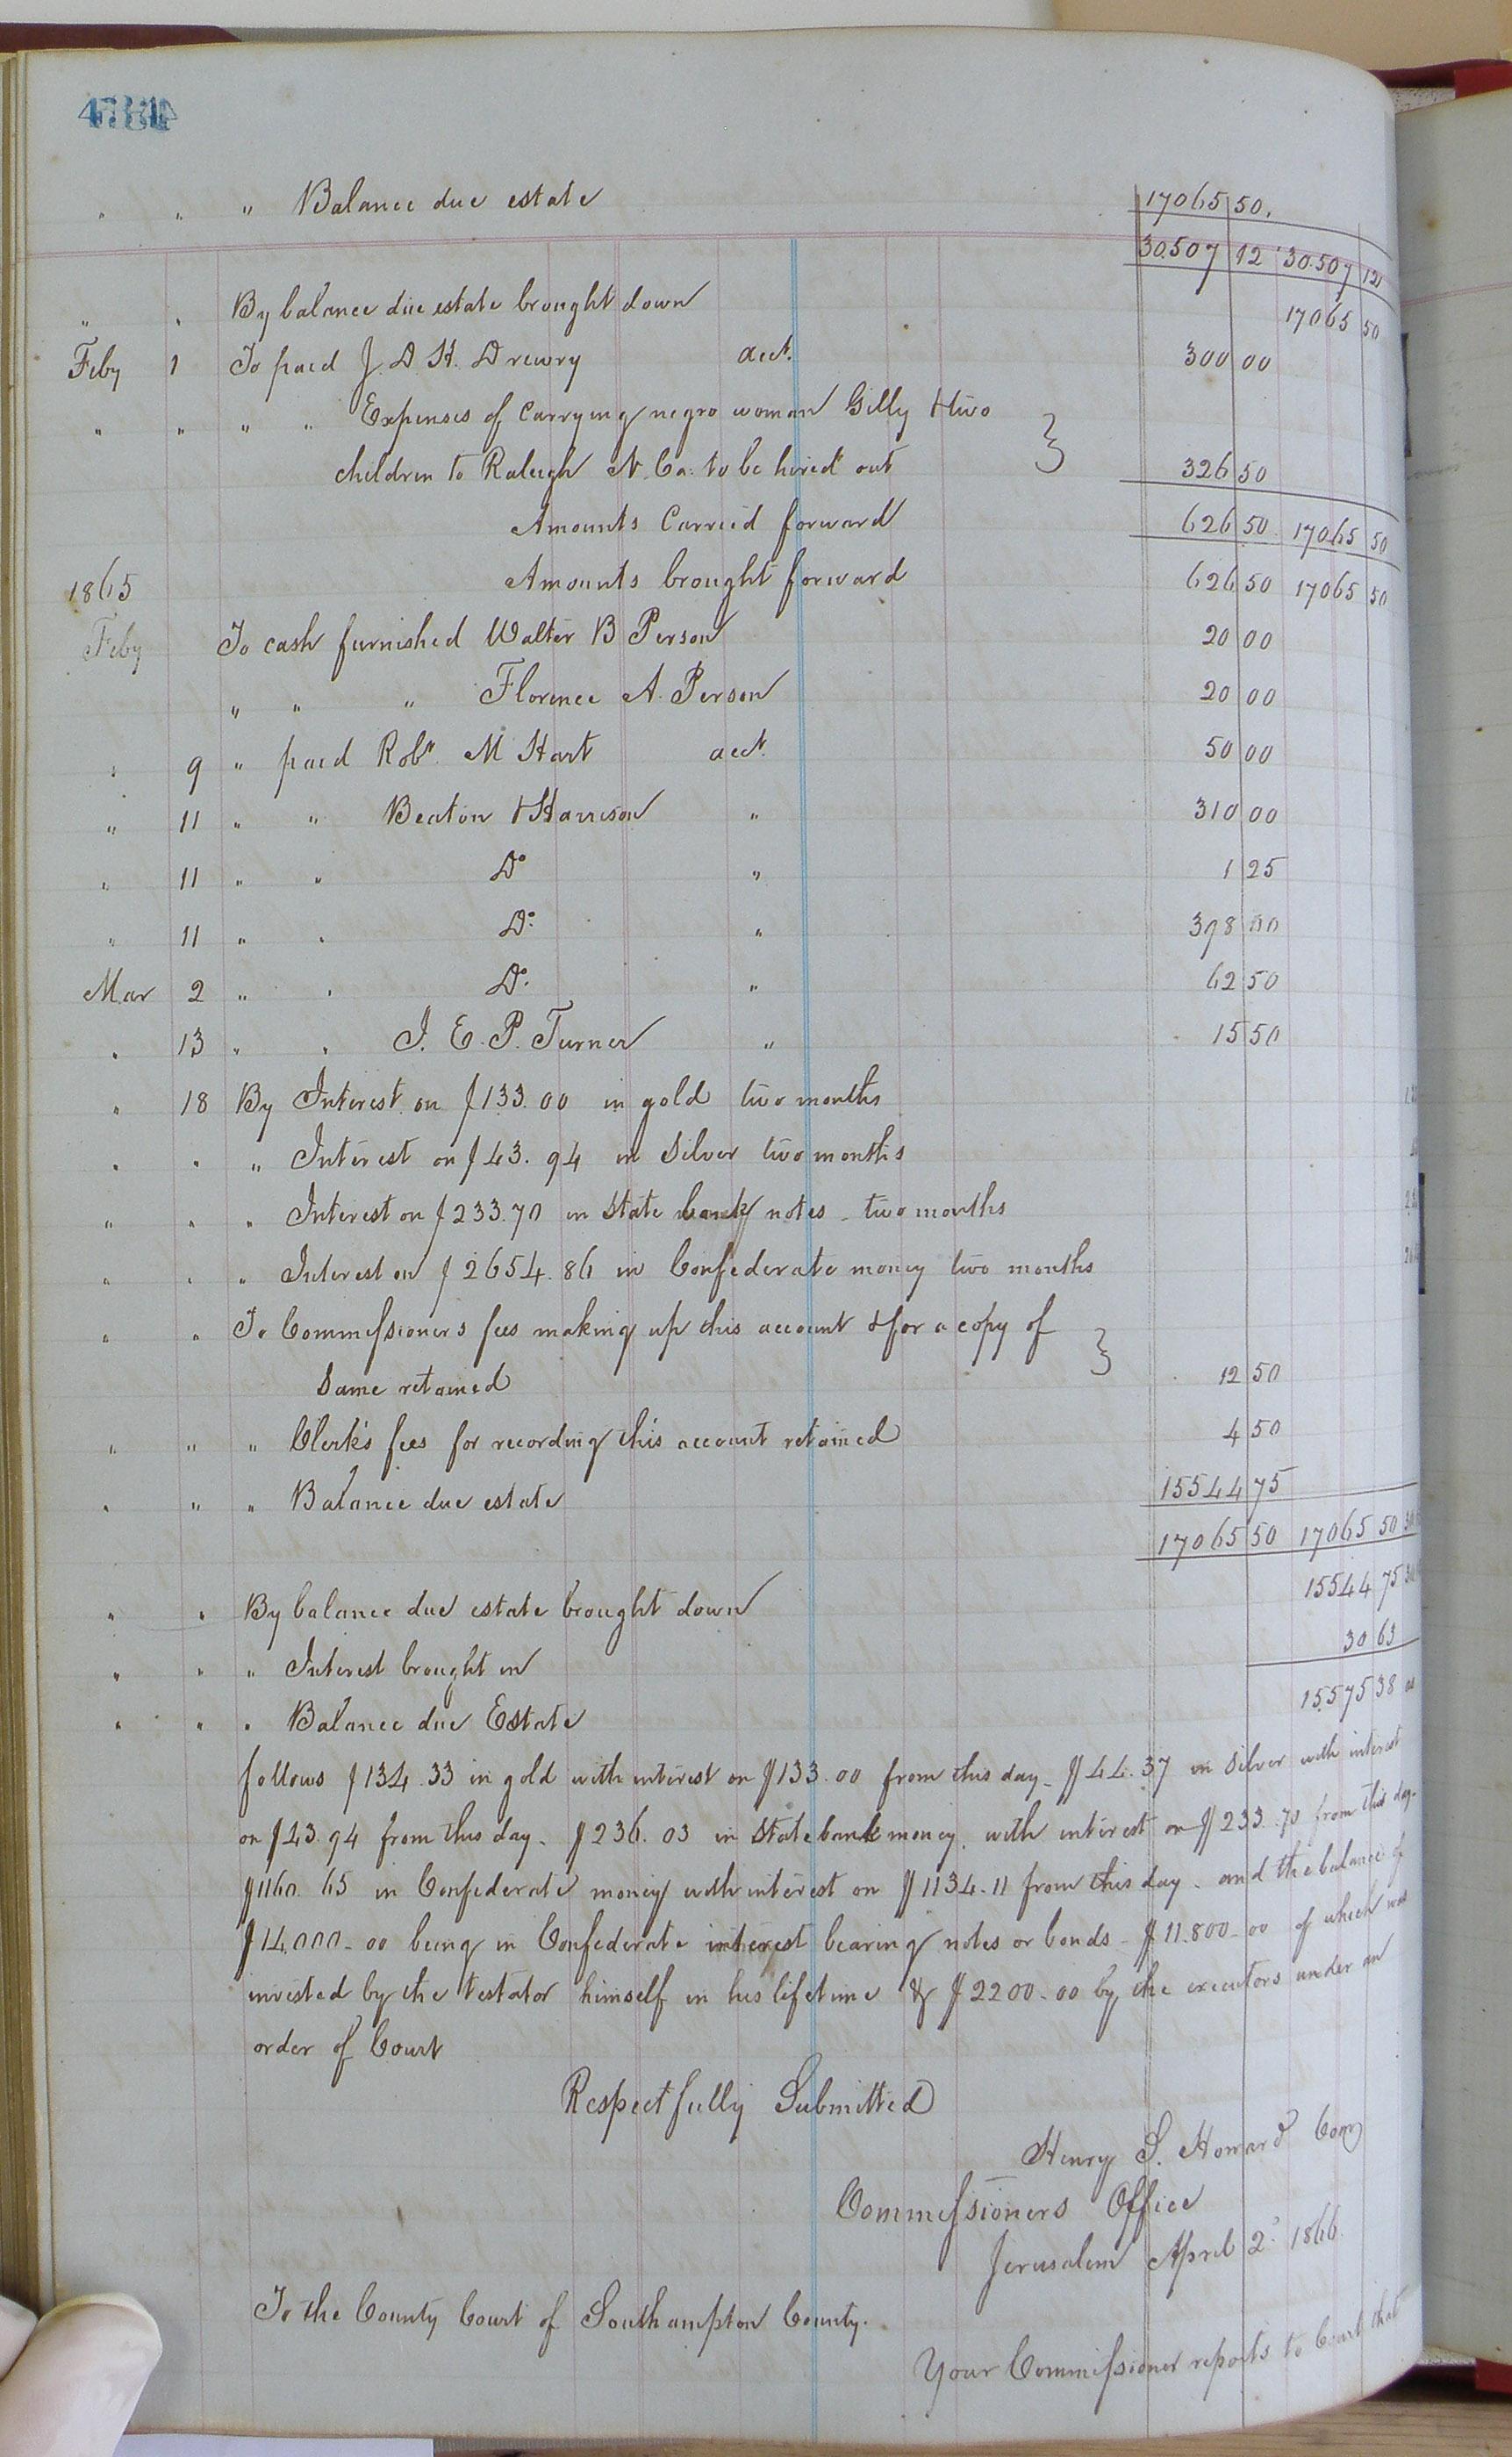 " " " Balance due estate 17065 50.
30.507 12 30.507 12
" " By balance due estate brought down 17065 50
Feby 1 To paid J. D. H. Drewry acct. 300 00
" " " " Expenses of Carrying negro woman Gilly & two
children to Raleigh N. Ca. to be hired out } 326 50
Amounts Carried forward 626 50 17065 50
1865 Amounts brought forward 626 50 17065 50
Feby To cash furnished Walter B Person 20 00
" " " Florence A. Person 20 00
" 9 " paid Robt. M Hart acct. 50 00
" 11 " " Beaton & Harrison " 310 00
" 11 " " Do " 1 25
" 11 " " Do. " 398 00
Mar 2 " " Do. " 62 50
" 13 " " J. E. P. Turner " 15 50
" 18 By Interest on $133.00 in gold two months
" " " Interest on $43.94 in Silver two months
" " " Interest on $233.70 in State bank notes - two months
" " " Interest on $2654.86 in Confederate money two months
" " To Commissioners fees making up this account & for a copy of
Same retained } 12 50
" " " Clerk's fees for recording this account retained 4 50
" " " Balance due estate 15544 75
17065 50 17065 50
" " By balance due estate brought down 15544 75
" " " Interest brought in 30 63
" " " Balance due Estate 15575 38 as
follows $134.33 in gold with interest on $133.00 from this day - $44.37 in Silver with interest
on $43.94 from this day - $236.03 in State bank money, with interest on $233.70 from this day -
$1160.65 in Confederate money with interest on $1134.11 from this day - and the balance of
$14,000-00 being in Confederate interest bearing notes or bonds - $11.800-00 of which was
invested by the testator himself in his lifetime & $2200-00 by the executors under an
order of Court
Respectfully Submitted
Henry S. Howard Comr
Commissioners Office
Jerusalem April 2d 1866.
To the County Court of Southampton County.
Your Commissioner reports to Court that